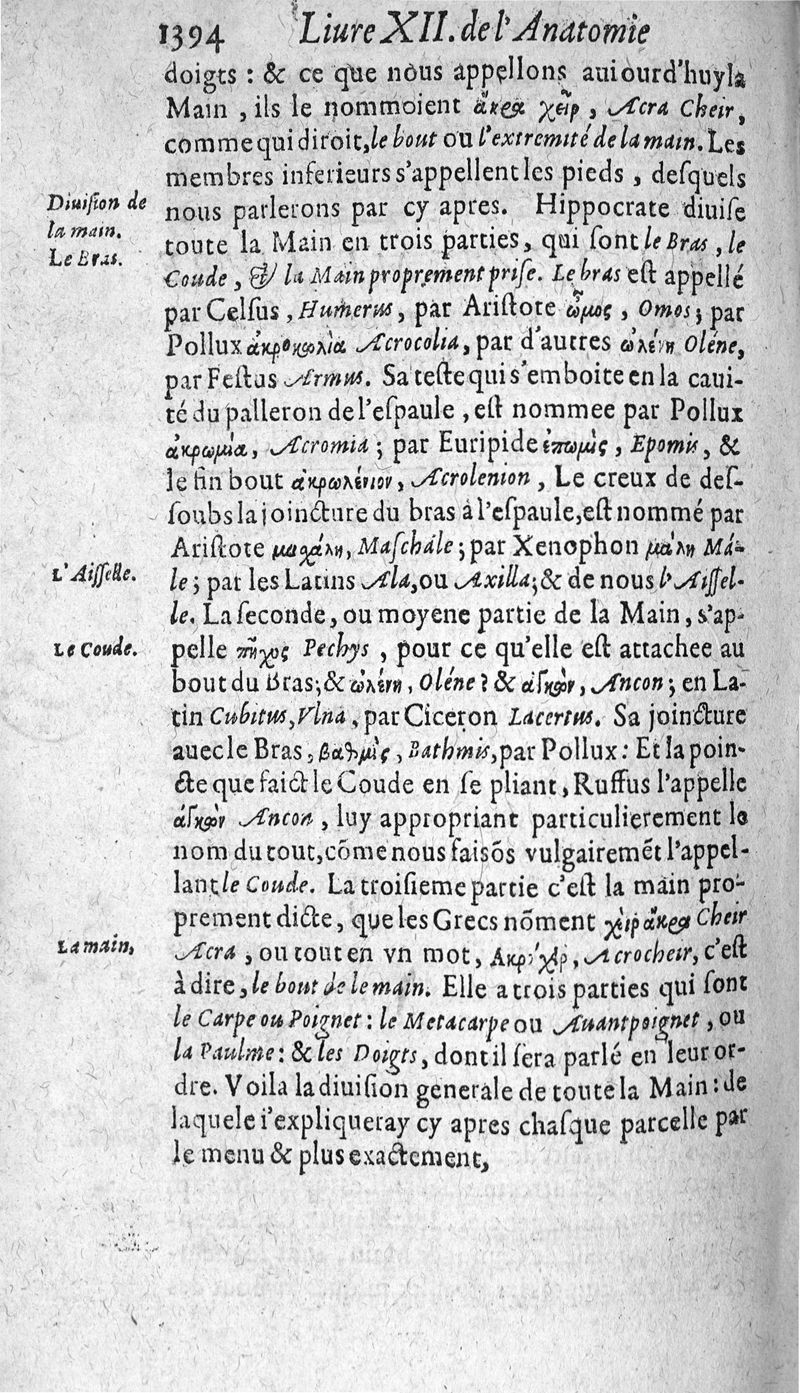 1394 Liure XII. de l'Anatomie
doigts : & ce que nous appellons auiourd'huy la
Main , ils le nommoient ἄκρα χεῖρ , Acra Cheir,
comme qui diroit, le bout ou l'extremité de la main. Les
membres inferieurs s'appellent les pieds , deſquels
Diuiſion de
la main.
nous parlerons par cy apres. Hippocrate diuiſe
toute la Main en trois parties, qui ſont le Bras , le
Le Bras.
Coude , & la Main proprement priſe. Le bras eſt appellé
par Celſus , Humerus, par Ariſtote ὦμος , Omos ; par
Pollux ἀκροκωλία Acrocolia, par d'autres ὠλένη Oléne,
par Feſtus Armus. Sa teſte qui s'emboite en la caui-
té du palleron de l'eſpaule , eſt nommee par Pollux
ἀκρωμία, Acromia ; par Euripide ἐπωμὶς , Epomis, &
le fin bout ἀκρωλένιον, Acrolenion , Le creux de deſ-
ſoubs la joincture du bras à l'eſpaule, eſt nommé par
Ariſtote μαχάλη, Maſchále ; par Xenophon μάλη Má-
L'Aiſſelle.
le ; par les Latins Ala, ou Axilla ; & de nous l'Aiſſel-
le. La ſeconde, ou moyene partie de la Main, s'ap-
Le Coude.
pelle πῆχος Pechys , pour ce qu'elle eſt attachee au
bout du Bras ; & ὠλένη, Oléne ? & ἀγκὼν, Ancon ; en La-
tin Cubitus, Vlna , par Ciceron Lacertus. Sa joincture
auec le Bras, βαθμὶς , Bathmis, par Pollux : Et la poin-
cte que faict le Coude en ſe pliant, Ruffus l'appelle
ἀγκὼν Ancon , luy appropriant particulierement le
nom du tout, cõme nous faiſõs vulgairemẽt l'appel-
lant le Coude. La troiſieme partie c'eſt la main pro-
prement dicte, que les Grecs nõment χὶρ ἄκρα Cheir
La main,
Acra , ou tout en vn mot, Acrocheir, c'eſt
à dire, le bout de le main. Elle a trois parties qui ſont
le Carpe ou Poignet : le Metacarpe ou Auantpoignet , ou
la Paulme : & les Doigts, dont il ſera parlé en leur or-
dre. Voila la diuiſion generale de toute la Main : de
laquele i'expliqueray cy apres chaſque parcelle par
le menu & plus exactement,